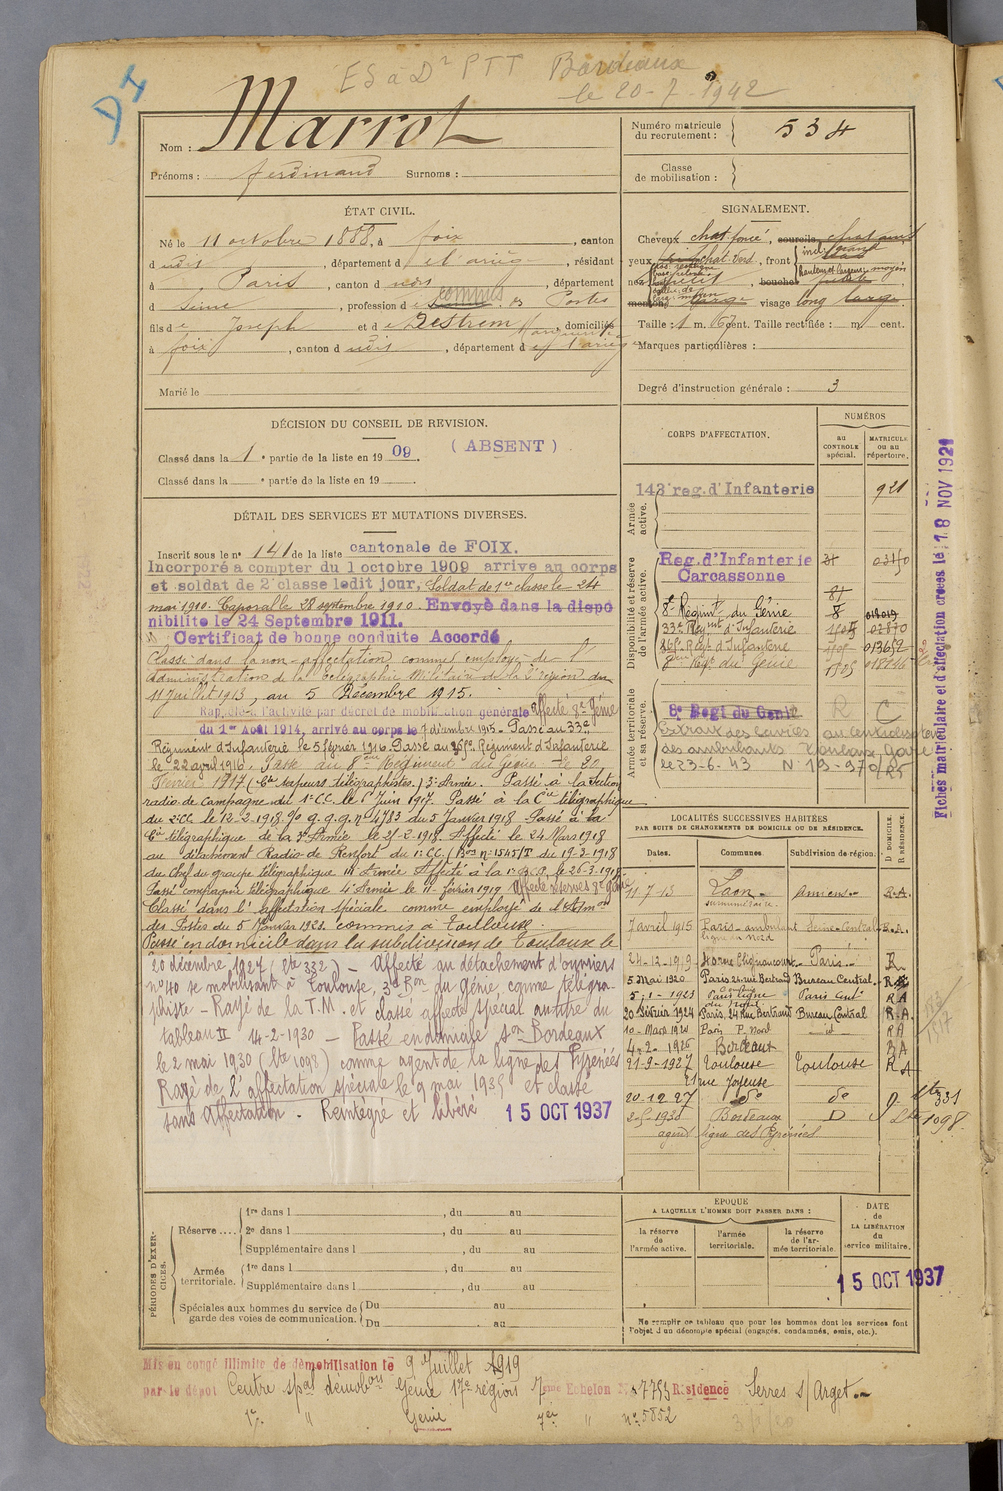 ES à Dr PTT Bordeaux
le 20-7-1942
DI
Nom : Marrot
Prénoms : Ferdinand Surnoms :
Numéro matricule du recrutement : 534
Classe de mobilisation :
ÉTAT CIVIL.
Né le 11 octobre 1888, à Foix, canton
dudit, département de l'ariège, résidant
à Paris, canton dudit, département
d Seine, profession de commis des Postes
fils de Joseph et de Destrem, domiciliés
à foix, canton dudit, département de l'ariège
Marié le
SIGNALEMENT.
Cheveux chat foncé, sourcils chatains
yeux chat. verd, front incl. grand
nez petit, bouche
menton large visage long large
Taille : 1 m. 67 cent. Taille rectifiée : m cent.
Marques particulières :
Degré d'instruction générale : 3
DÉCISION DU CONSEIL DE REVISION.
Classé dans la 1e partie de la liste en 1909. (ABSENT)
Classé dans la e partie de la liste en 19
DÉTAIL DES SERVICES ET MUTATIONS DIVERSES.
Inscrit sous le no 141 de la liste cantonale de FOIX.
Incorporé à compter du 1 octobre 1909 arrive au corps
et soldat de 2e classe ledit jour, Soldat de 1re classe le 24
mai 1910. Caporal le 28 septembre 1910. Envoyé dans la dispo
nibilite le 24 Septembre 1911.
Certificat de bonne conduite Accordé
Classé dans la non-affectation comme employé de l'
administration de la télégraphie Militaire de la région du
11 juillet 1913, au 5 Décembre 1915.
Rappelé à l'activité par décret de mobilisation générale affecté 8e Génie
du 1er Août 1914, arrivé au corps le 7 décembre 1915 - Passé au 33e
Régiment d'Infanterie le 5 février 1916. Passé au Régiment d'Infanterie
le 22 avril 1916. Passé au 8eme Régiment du Génie le 20
Février 1917 (Cie sapeurs télégraphistes) 3e Armée. Passé à la Section
radio de campagne du 1er CC. le 6 Juin 1917. Passé à la Cie télégraphique
du 2e CC le 12-2-1918. % G.Q.G. no 4783 du 5 Janvier 1918 Passé à la
Cie télégraphique de la 3e Armée le 21-2-1918. Affecté le 24 Mars 1918
au détachement Radio de Renfort du 1er CC. (Bon no 1545/T du 19-3-1918
du Chef du groupe télégraphique III Armée Affecté à la 1re le 26-3-1918
Passé compagnie télégraphique 4e Armée le 11 février 1919 Affecté réserves 8e génie
Classé dans l'affectation spéciale comme employé de l'Admon
des Postes du 5 Janvier 1921. commis à Toulouse
Passé en domicile dans la subdivision de Toulouse le
20 décembre 1927 (lte 332) - Affecté au détachement d'ouvriers
no 40 se mobilisant à Toulouse, 3e Bon du Génie, comme télégra-
phiste - Rayé de la T.M. et classé affecté spécial au titre du
tableau II 14-2-1930 - Passé en domicile son Bordeaux
le 2 mai 1930 (lte 1098) comme agent de la ligne des Pyrénées
Rayé de l'affectation spéciale le 9 mai 1935 et classé
sans affectation. Réintégré et libéré 15 OCT 1937
CORPS D'AFFECTATION.
NUMÉROS
au CONTROLE spécial.
MATRICULE ou au répertoire.
Armée active.
143e reg. d'Infanterie 921
Disponibilité et réserve de l'armée active.
Reg. d'Infanterie
Carcassonne
8e Régimt du Génie
33e Regmt d'Infanterie
Regt d'Infanterie 013652
8eme Regt du Génie
Armée territoriale et sa réserve.
8e Regi du Genie
R C
Extrait des Contrôles au centralisateur
des ambulants Toulouse Gare
le 23-6-43 N° 19-970/RS
Fiches matriculaire et d'affectation créées le 18 NOV 1921
LOCALITÉS SUCCESSIVES HABITÉES
PAR SUITE DE CHANGEMENTS DE DOMICILE OU DE RÉSIDENCE.
Dates. Communes. Subdivision de région. D DOMICILE. R RÉSIDENCE.
11 7 13 Laon - surnuméraire. Amiens R.A.
7 avril 1915 Paris-ambulant ligne du Nord Seine-Central R.A.
24-12-1919 Horne Clignancourt Paris R
5 Mai 1920 Paris 24 rue Bertrand Bureau Central R
5-1-1921 Paris commis ligne du Nord Paris Cent. R A
20 février 1924 Paris, 24 Rue Bertrand Bureau Central R.A
10 Mars 1924 Paris P. Nord id RA
4-2-1926 Bordeaux RA
21-9-1927 Toulouse Toulouse R A
21 rue Joyeuse
20-12-27 do do D. lte 331
2-5-1930 Bordeaux D lte 1098
agent ligne des Pyrénées
PÉRIODES D'EXERCICES.
Réserve .... 1re dans l , du au
2e dans l , du au
Supplémentaire dans l , du au
Armée territoriale. 1re dans l , du au
Supplémentaire dans l , du au
Spéciales aux hommes du service de garde des voies de communication. Du au
Du au
ÉPOQUE
A LAQUELLE L'HOMME DOIT PASSER DANS :
la réserve de l'armée active.
l'armée territoriale.
la réserve de l'armée territoriale.
DATE de LA LIBÉRATION du service militaire.
15 OCT 1937
Ne remplir ce tableau que pour les hommes dont les services font
l'objet d'un décompte spécial (engagés, condamnés, omis, etc.).
Mis en congé illimité de démobilisation le 9 Juillet 1919
par le dépôt Centre spal démobon Génie 17e région 7eme Echelon No 7753 Résidence Serres s/Arget.
17e " Génie 7er " no 5852